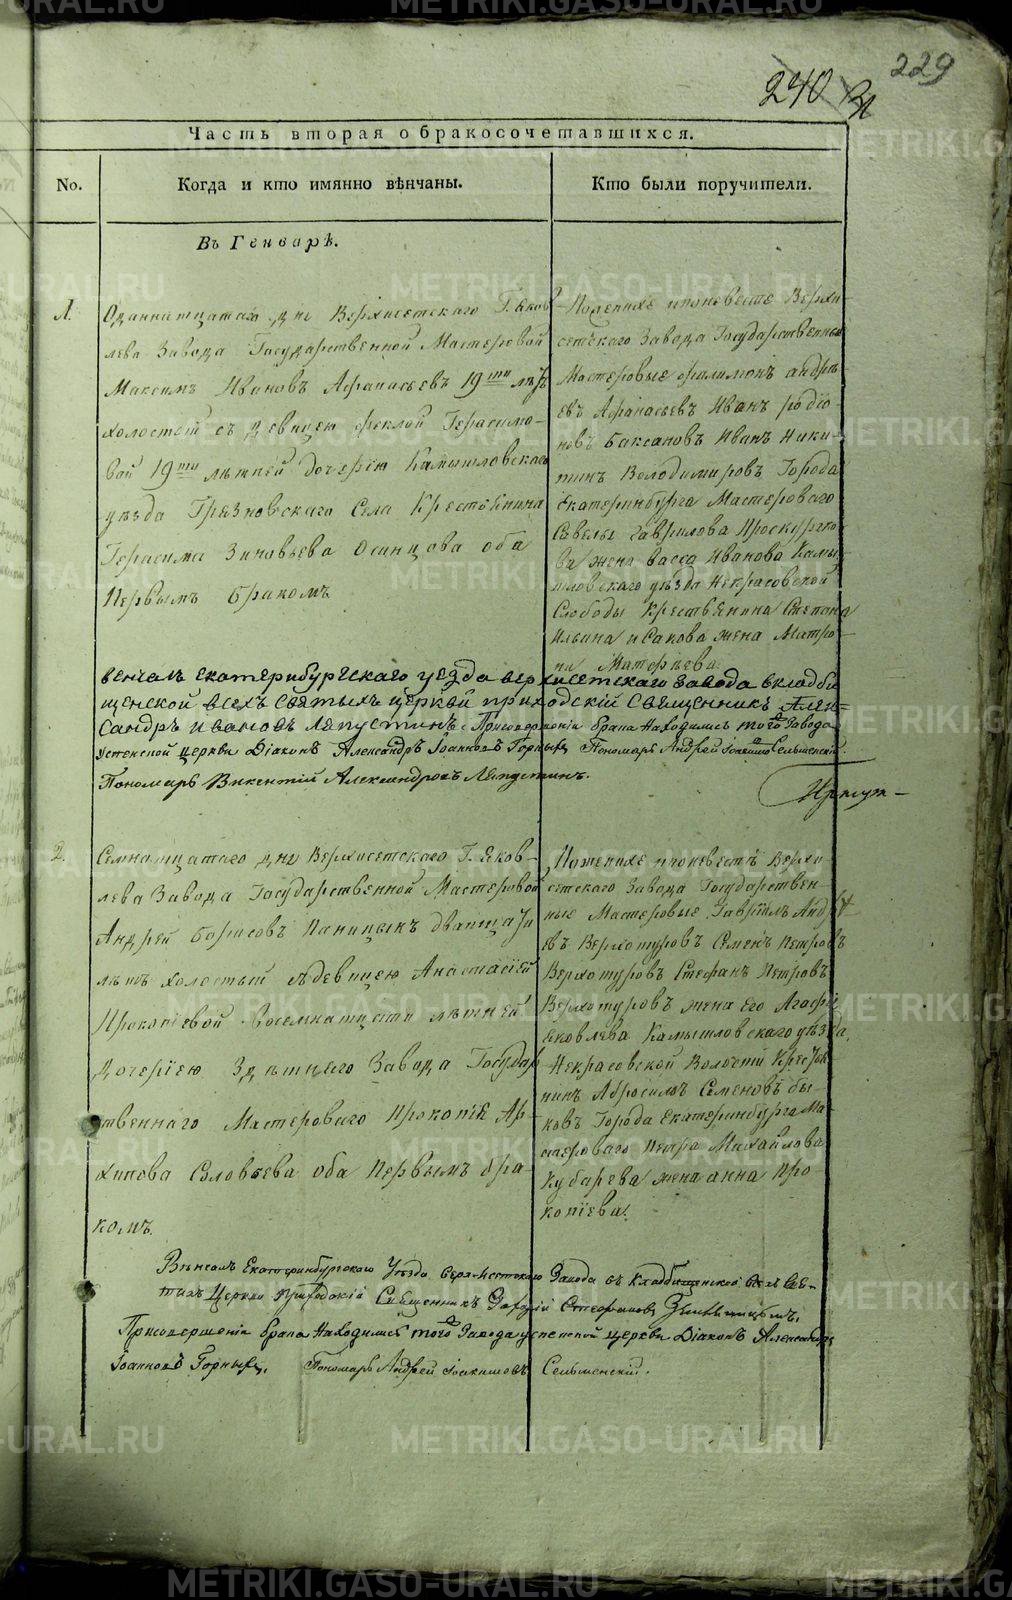 229
240
Часть вторая о бракосочетавшихся.
No.
Когда и кто имянно вѣнчаны.
Кто были поручители.
Въ Генварѣ.
1.
Одиннатцатаго дня Верхисетского Г. Яков
лева Завода Государственной Мастеровой
Максимъ Ивановъ Афанасьевъ 19ти лѣтъ
холостой съ девицею Феклой Герасимо-
вой 19ти лѣтней дочерью Камышловскаго
уѣзда Грязновскаго Села Крестьянина
Герасима Зиновьева Осинцова оба
Первымъ бракомъ
По женихе и по невесте Верхи-
сетскаго Завода Государственныя
Мастеровые Филимонъ Андрѣ
евъ Афанасьевъ Иванъ родіо
новъ Баксановъ Иванъ Ники-
тинъ Володимировъ Города
Екатеринбурга Мастероваго
Савелья Гаврилова Проскуряко
ва жена васса Иванова Камы
шловскаго уѣзда Некрасовской
Слободы Крестьянина Степана
Ильина Исакова жена Матро-
на Матфѣева.
венчалъ екатеринбургскаго уезда верхисетскаго завода в кладби
щенской всехъ святыхъ церкви приходскій священникъ Алек-
сандръ ивановъ Ляпустинъ. При совершеніи брака Находились того Завода
успенской церкви Діаконъ Александръ Іоанновъ Горныхъ Пономарь Андрей Іоакимовъ Сельменскій
Пономарь Викентий Александровъ Ляпустинъ.
2.
Семнатцатаго дня Верхисетского Г. Яков-
лева Завода Государственной Мастеровой
Андрей Борисовъ Паницынъ дватцати
лѣтъ холостый съ девицею Анастасіей
Прокопіевой восемнатцати лѣтней
дочерію Здѣшнего Завода Государ
ственнаго Мастероваго Прокопія Ар-
хипова Соловьева оба Первымъ бра-
комъ.
По женихе и по невестѣ Верхи-
сетскаго Завода Государствен-
ные Мастеровые Гаврилъ Андрѣ
евъ Верхотуровъ Семенъ Петровъ
Верхотуровъ Стефанъ Петровъ
Верхотуровъ жена его Агафи
Яковлева Камышловскаго уѣзда,
Некрасовской Волости Крестья
нинъ Абросимъ Семеновъ бы-
ковъ Города Екатеринбурга Ма-
стероваго Петра Михайлова
Кубарева жена анна Про-
копіева.
Вѣнчалъ Екатеринбургскаго Уѣзда верхисетского Завода въ Кладбищенской Всѣхъ Свя-
тыхъ Церкви приходскій Священникъ Стефановъ
При совершеніи брака Находились того Завода успенской церкви Діаконъ Александръ
Іоанновъ Горныхъ. Пономарь Андрей Іоакимовъ Сельменскій.
METRIKI.GASO-URAL.RU